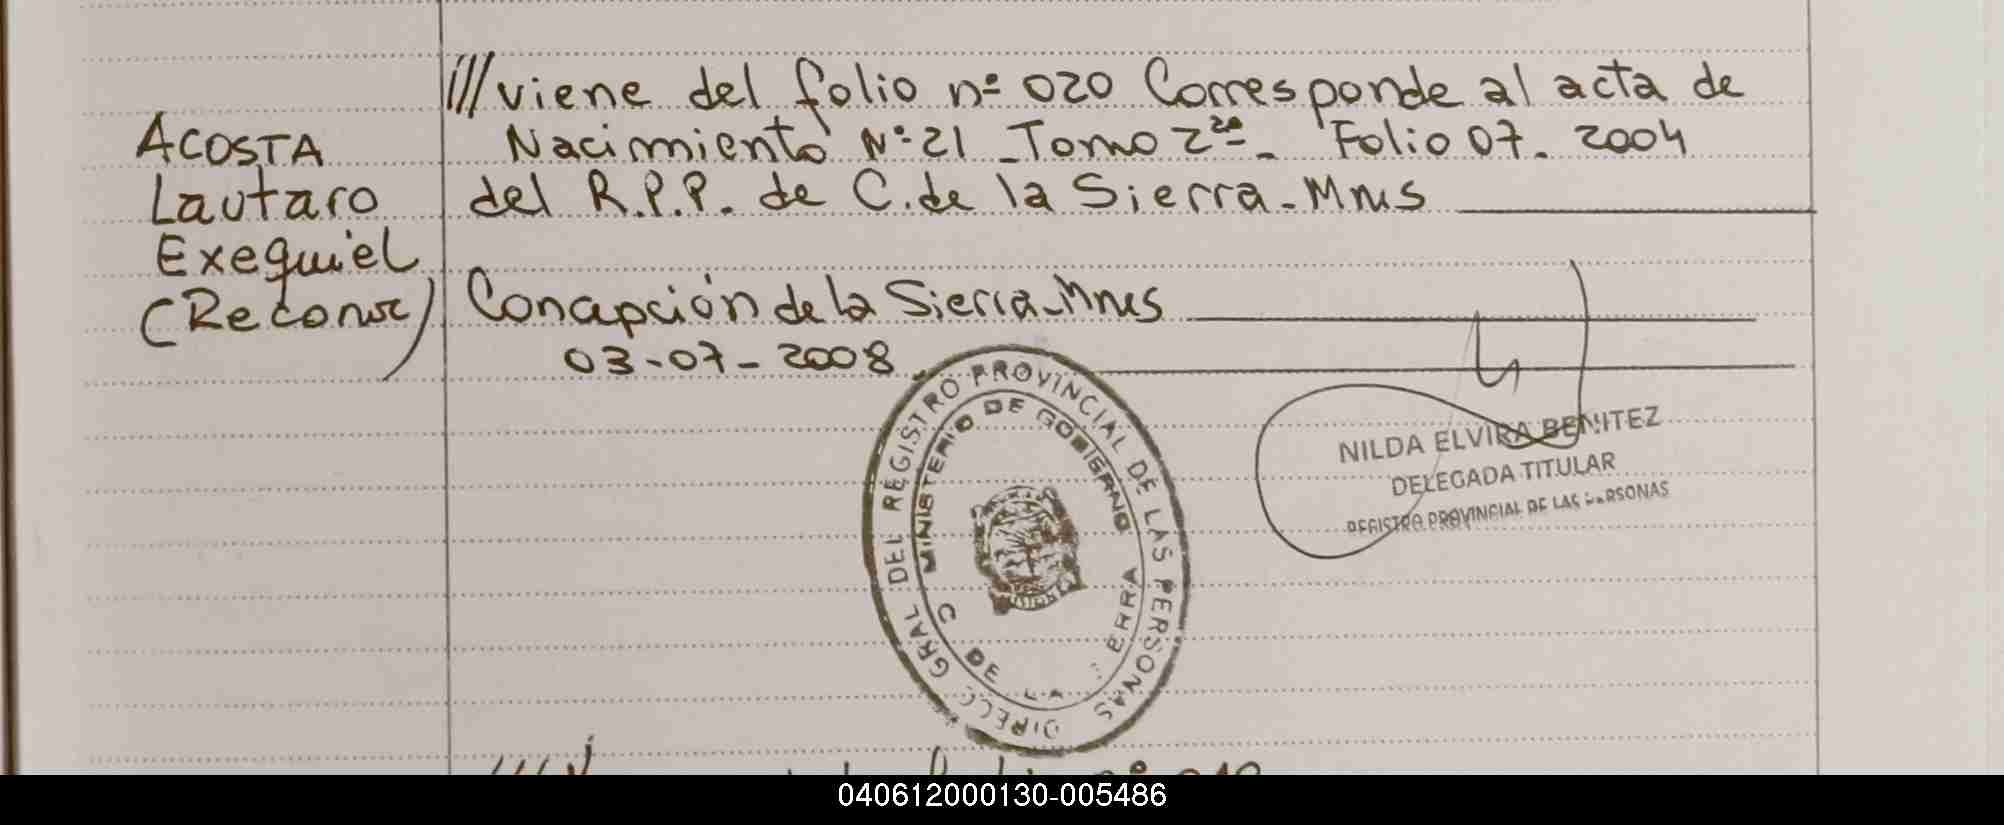 ACOSTA
Lautaro
Exequiel
(Reconoc)
///viene del folio nº 020 Corresponde al acta de
Nacimiento Nº 21 - Tomo 2º - Folio 07. 2004
del R.P.P. de C. de la Sierra - Mnes
Concepción de la Sierra - Mnes
03-07-2008
DIRECC GRAL DEL REGISTRO PROVINCIAL DE LAS PERSONAS
MINISTERIO DE GOBIERNO
C DE LA ERRA
NILDA ELVIRA BENITEZ
DELEGADA TITULAR
REGISTRO PROVINCIAL DE LAS PERSONAS
040612000130-005486